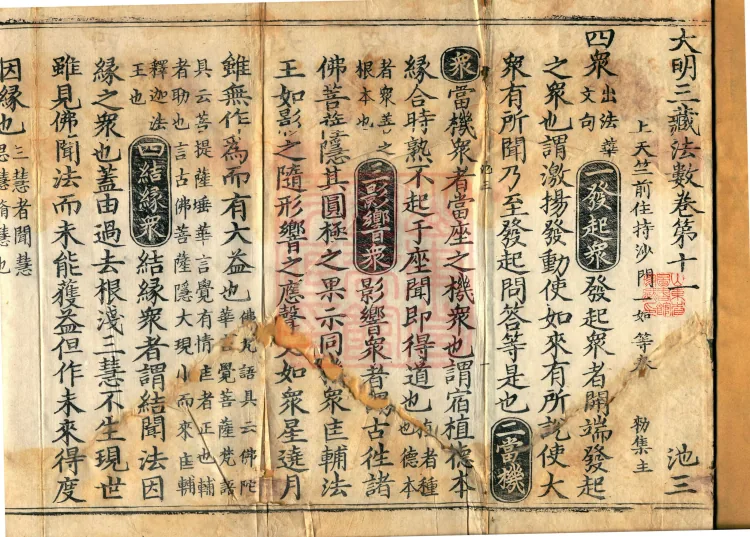 大明三藏法數卷第十一 池三
上天竺前住持沙門一如等奉 勑集主
四衆 出法華文句 一發起衆 發起衆者開端發起
之衆也謂激揚發動使如來有所說使大
衆有所聞乃至發起問答等是也 二當機
衆 當機衆者當座之機衆也謂宿植德本
緣合時熟不起于座聞即得道也 者種也德本
者衆善之根本也 三影響衆 影響衆者 古徃諸
佛菩薩隱其圓極之果示同 衆匡輔法
王如影之隨形響之應聲又如衆星遶月
雖無作爲而有大益也 佛梵語具云佛陀華言覺菩薩梵語
具云菩提薩埵華言覺有情匡者正也輔
者助也言古佛菩薩隱大現小而來匡輔
釋迦法王也 四結緣衆 結緣衆者謂結聞法因
緣之衆也蓋由過去根淺三慧不生現世
雖見佛聞法而未能獲益但作未來得度
因緣也 三慧者聞慧思慧脩慧也